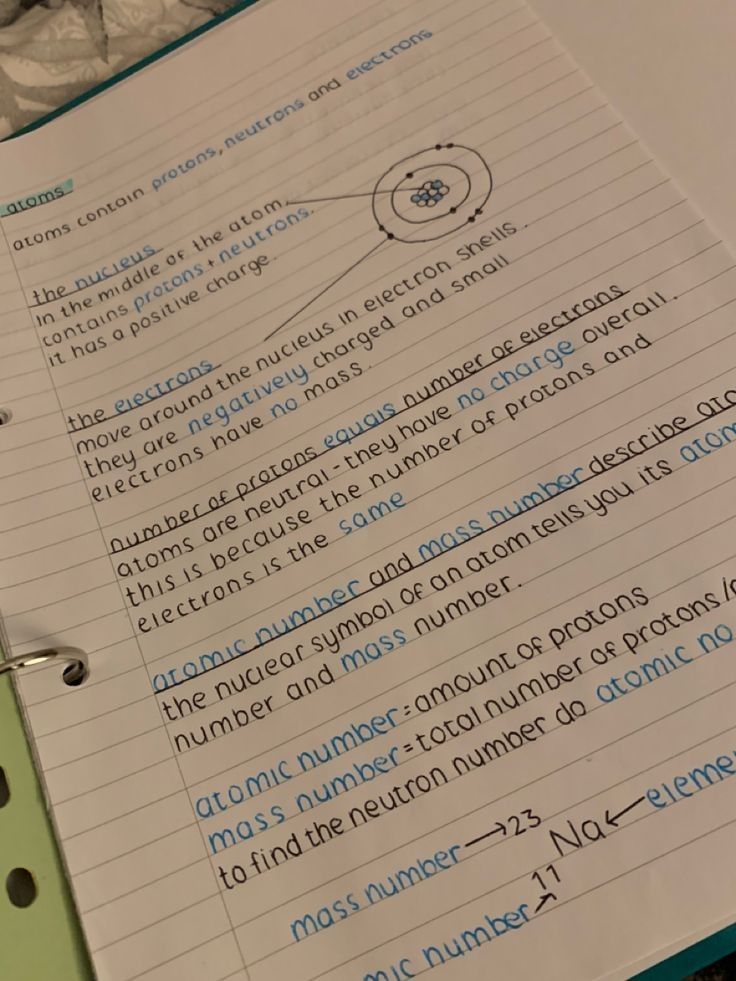 atoms
atoms contain protons, neutrons and electrons
the nucleus
in the middle of the atom.
contains protons + neutrons.
it has a positive charge.
the electrons
move around the nucleus in electron shells.
they are negatively charged and small
electrons have no mass.
number of protons equals number of electrons
atoms are neutral - they have no charge overall.
this is because the number of protons and
electrons is the same
atomic number and mass number describe
the nuclear symbol of an atom tells you its
number and mass number.
atomic number = amount of protons
mass number = total number of protons /
to find the neutron number do atomic no
mass number → 23
Na ←
11
number ↗